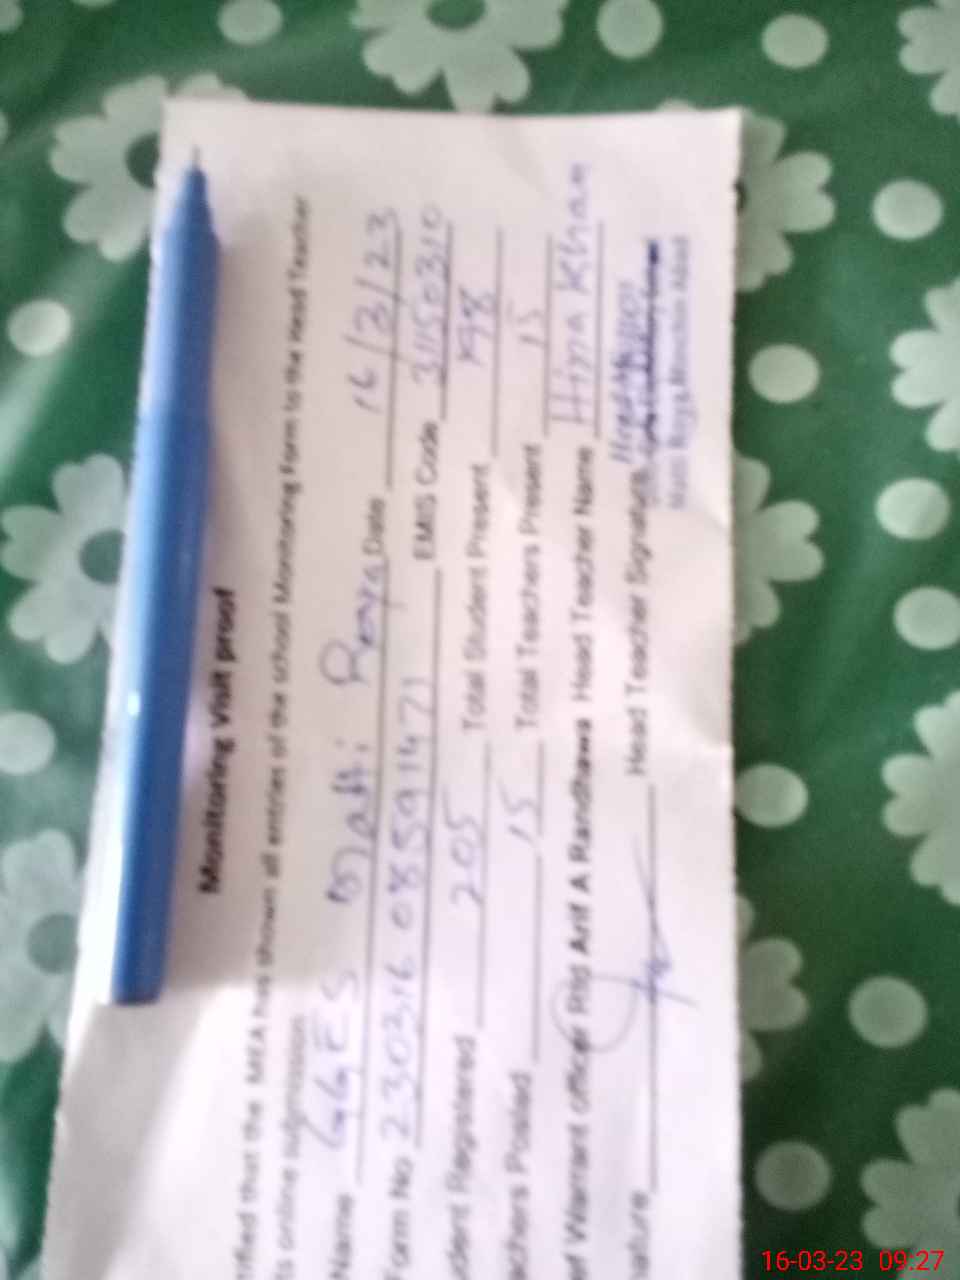 Monitoring Visit proof
rtified that the MEA has shown all entries of the school Monitoring Form to the Head Teacher
ts online submission
Name GGES Matti Roya Date 16/3/23
Form No 230316 08 5914 71 EMIS Code 31150310
udent Registered 205 Total Student Present 198
achers Posted 15 Total Teachers Present 15
ef Warrant officer Rtd Arif A Randhawa Head Teacher Name Hina Khan
nature Head Teacher Signature
Matti Roya Minchin Abad
16-03-23 09:27